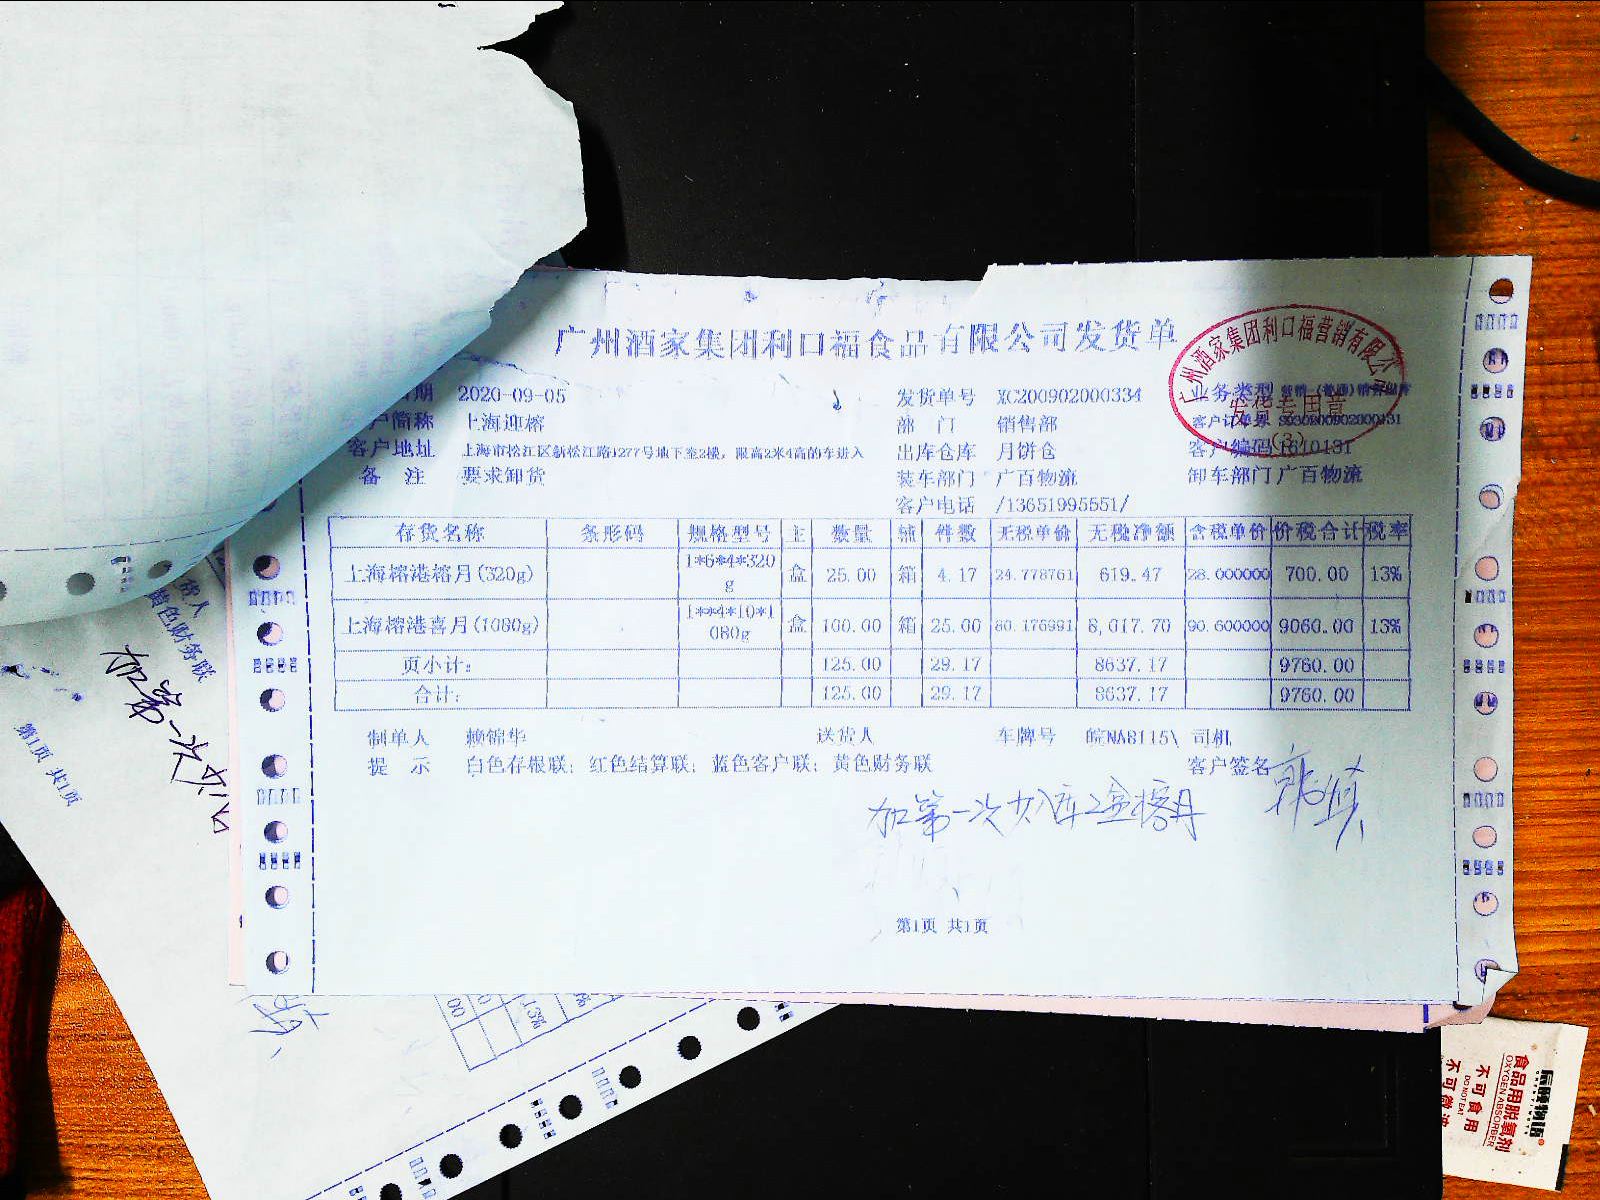 广州酒家集团利口福食品有限公司发货单
期 2020-09-05 发货单号 XC200902000334 业务类型
户简称 上海迎榕 部 门 销售部 客户订单号
客户地址 上海市松江区新松江路1277号地下室2楼，限高2米4高的车进入 出库仓库 月饼仓 客户编码 1610131
备 注 要求卸货 装车部门 广百物流 卸车部门 广百物流
客户电话 /13651995551/
广州酒家集团利口福营销有限公司
发货专用章
(3)
存货名称 条形码 规格型号 主 数量 辅 件数 无税单价 无税净额 含税单价 价税合计 税率
上海榕港榕月(320g) 1*6*4*320g 盒 25.00 箱 4.17 24.778761 619.47 28.000000 700.00 13%
上海榕港喜月(1080g) 1**4*10*1080g 盒 100.00 箱 25.00 80.176991 8,017.70 90.600000 9060.00 13%
页小计: 125.00 29.17 8637.17 9760.00
合计: 125.00 29.17 8637.17 9760.00
制单人 赖锦华 送货人 车牌号 皖NA8115\ 司机
提 示 白色存根联; 红色结算联; 蓝色客户联; 黄色财务联 客户签名
加第一次 入库2盒榕月
第1页 共1页
货人
黄色财务联
加第一次
第1页 共1页
00
13%
食品用脱氧剂
OXYGEN ABSORBER
不可食用
DO NOT EAT
不可微